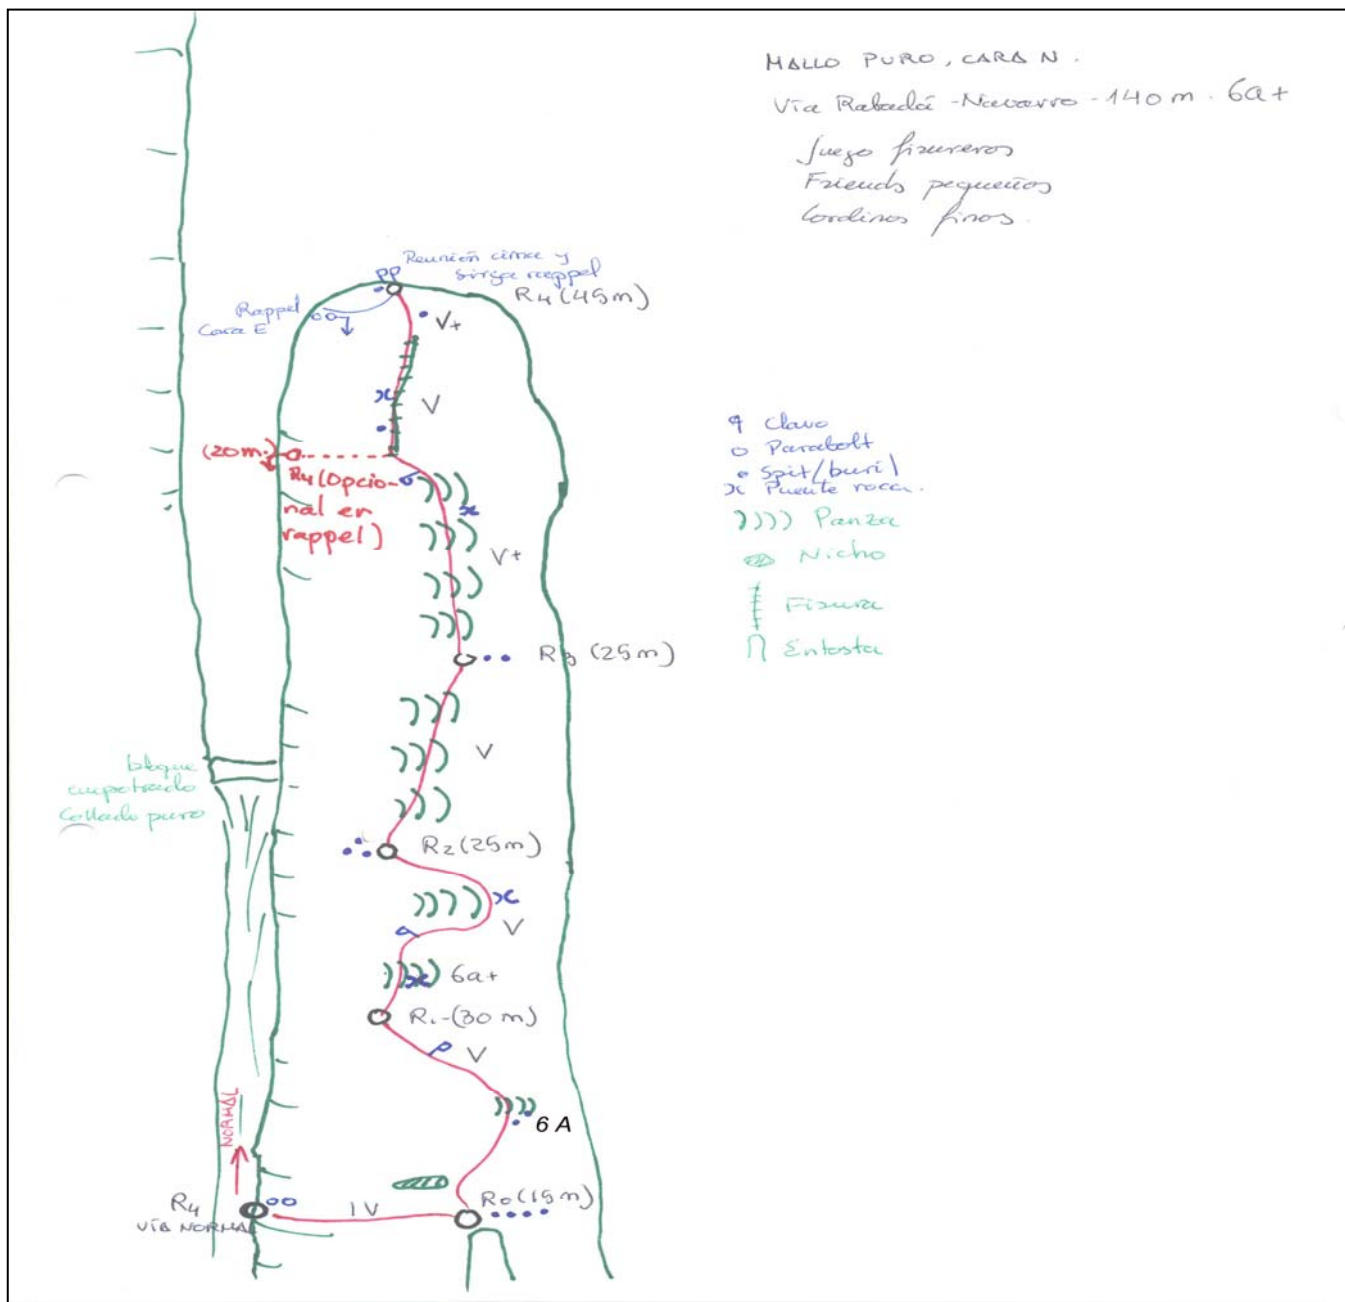 MALLO PURO, CARA N.
Vía Rabadá - Navarro - 140 m. 6a+
Juego fisureros
Friends pequeños
Cordinos finos.
Reunión cima y
sirga rappel
R4 (45m)
Rappel
Cara E
V+
V
(20m.)
R4 (Opcio-
nal en
rappel)
V+
R3 (25m)
V
bloque
empotrado
Collado puro
R2 (25m)
V
6a+
R1 - (30 m)
V
6 A
NORMAL
R4
VÍA NORMAL
IV
R0 (15m)
Clavo
Parabolt
Spit/buril
Puente roca.
Panza
Nicho
Fisura
Entosta